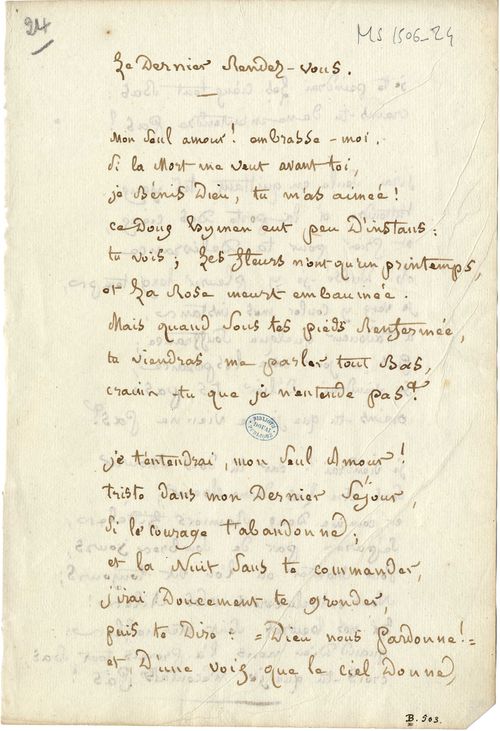 24
MS 1506-24
Le Dernier Rendez-vous.
Mon Seul amour! embrasse-moi.
Si la Mort me veut avant toi,
je Bénis Dieu, tu m'as aimée!
ce Doux hymen eut peu D'instans:
tu vois; Les fleurs n'ont qu'un printemps,
et La Rose meurt embaumée.
Mais quand Sous tes pieds Renfermée,
tu viendras me parler tout Bas,
crains-tu que je n'entende pas?
je t'entendrai, mon Seul Amour!
triste dans mon Dernier Séjour,
Si le courage t'abandonne;
et la Nuit Sans te commander,
j'irai Doucement te gronder,
puis te Dire: =Dieu nous Pardonne!=
et D'une voix que le ciel Donne,
BIBLIOTH
DOUAI
PUBLIQUE
B. 503.